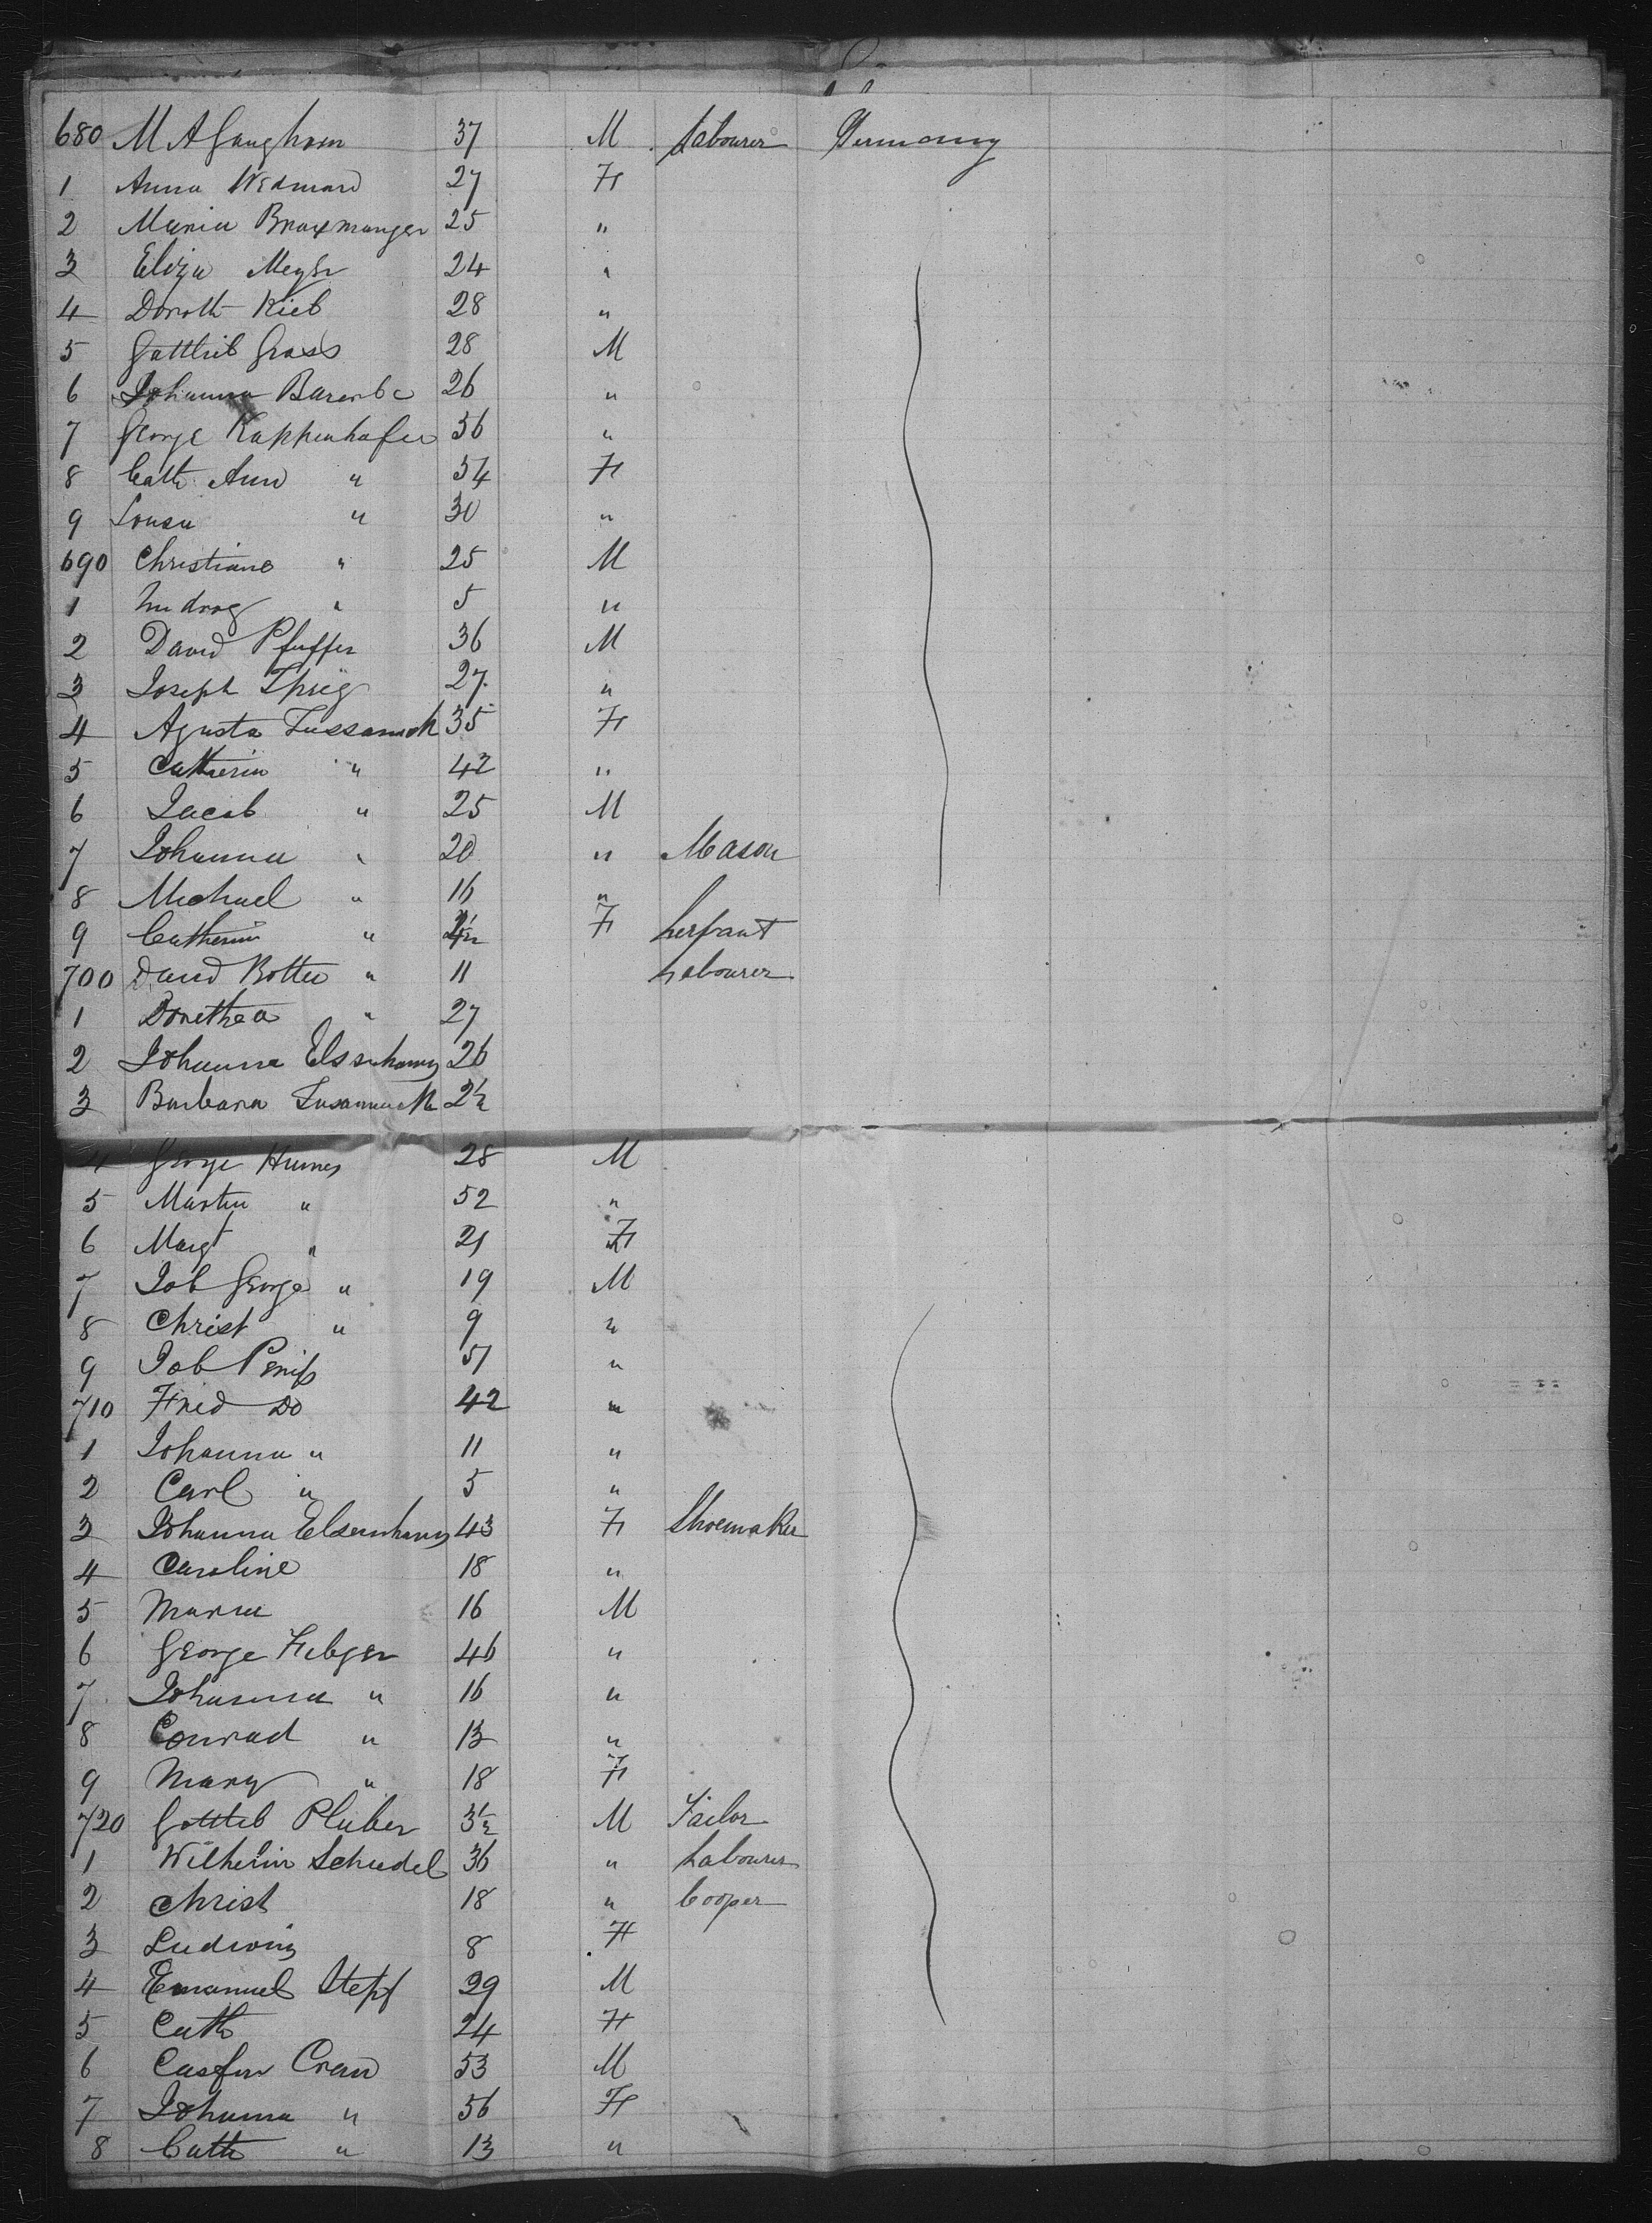 680 M A Ganghorn 37 M Labourer Germany
1 Anna Wedmard 27 F
2 Maria Braxmanger 25 "
3 Eliza Meyer 24 "
4 Doroth Kieb 28 "
5 Gottlieb Grass 28 M
6 Johanna Barenbc 26 "
7 George Kappenhafer 36 "
8 Cath Ann " 34 F
9 Lousa " 30 "
690 Christiane " 25 M
1 " 5 "
2 David Pfuffer 36 M
3 Joseph 27 "
4 Agusta 35 F
5 Catherin " 42 "
6 Jacob " 25 M
7 Johanna " 20 " Mason
8 Michael " 16 "
9 Catherin " F Serfant
700 David Botter " 11 Labourer
1 Dorethea " 27
2 Johanna Elsenhans 26
3 Barbara 2½
4 George Humes 28 M
5 Martin " 52 "
6 Margt " 21 F
7 Job George " 19 M
8 Christ " 9 "
9 Job 51 "
710 Fried Do 42 "
1 Johanna " 11 "
2 Carl " 5 "
3 Johanna Elsenhans 43 F Shoemaker
4 Caroline 18 "
5 Maria 16 M
6 George Fubger 46 "
7 Johanna " 16 "
8 Conrad " 13 "
9 Mary " 18 F
720 Gottleb Pluber 3½ M Tailor
1 Wilhelm Schudel 36 " Labourer
2 Christ 18 " Cooper
3 Ludwig 8 F
4 Emanuel Stepf 29 M
5 Cath 24 F
6 Casfer Cran 53 M
7 Johanna " 56 F
8 Cath " 13 "